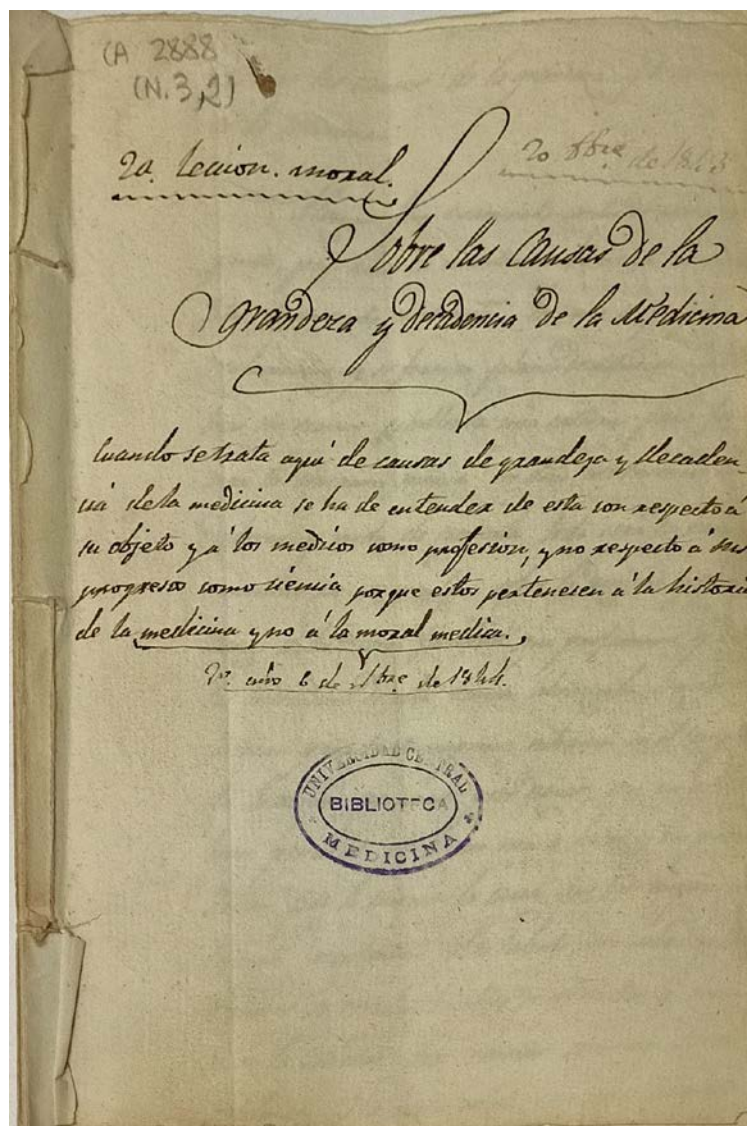 CA 2888
(N.3,2)
2a. leccion. moral.
20 8bre de 1843
Sobre las Causas de la
Grandeza y decadencia de la Medicina
Cuando se trata aquí de causas de grandeza y decaden-
cia de la medicina se ha de entender de esta con respecto á
su objeto y á los medicos como profesion, y no respecto á sus
progresos como ciéncia porque estos pertenecen á la historia
de la medicina y no á la moral medica.
2º. año 6 de de 1844.
UNIVERSIDAD CENTRAL
BIBLIOTECA
MEDICINA